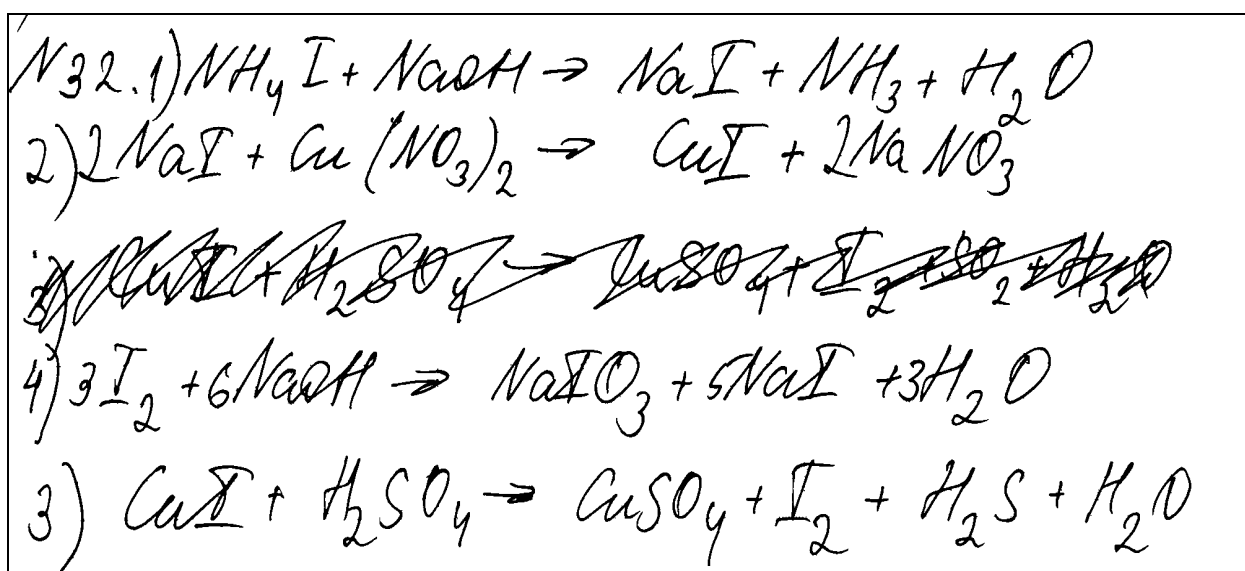 N32.1) NH₄I + NaOH → NaI + NH₃ + H₂O
2) 2NaI + Cu(NO₃)₂ → CuI + 2NaNO₃
3) CuI + H₂SO₄ → CuSO₄ + I₂ + SO₂ + H₂O
4) 3I₂ + 6NaOH → NaIO₃ + 5NaI + 3H₂O
3) CuI + H₂SO₄ → CuSO₄ + I₂ + H₂S + H₂O